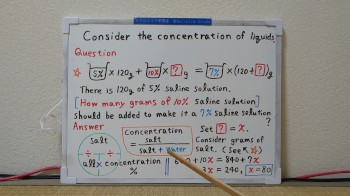 Consider the concentration of liquids
Question
☆ 5% × 120g + 10% × ? g = 7% × (120+?)g
There is 120g of 5% saline solution.
[How many grams of 10% saline solution]
should be added to make it a 7% saline solution?
Answer
Concentration = salt / salt + water
Set ? = x.
Consider grams of
salt. (See ☆)
salt
÷ ÷
all × concentration
%
+ 10x = 840 + 7x
3x = 240, x = 80